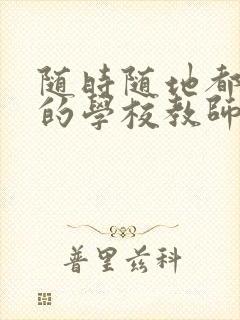 随時随地都
的學校教師
普里兹科